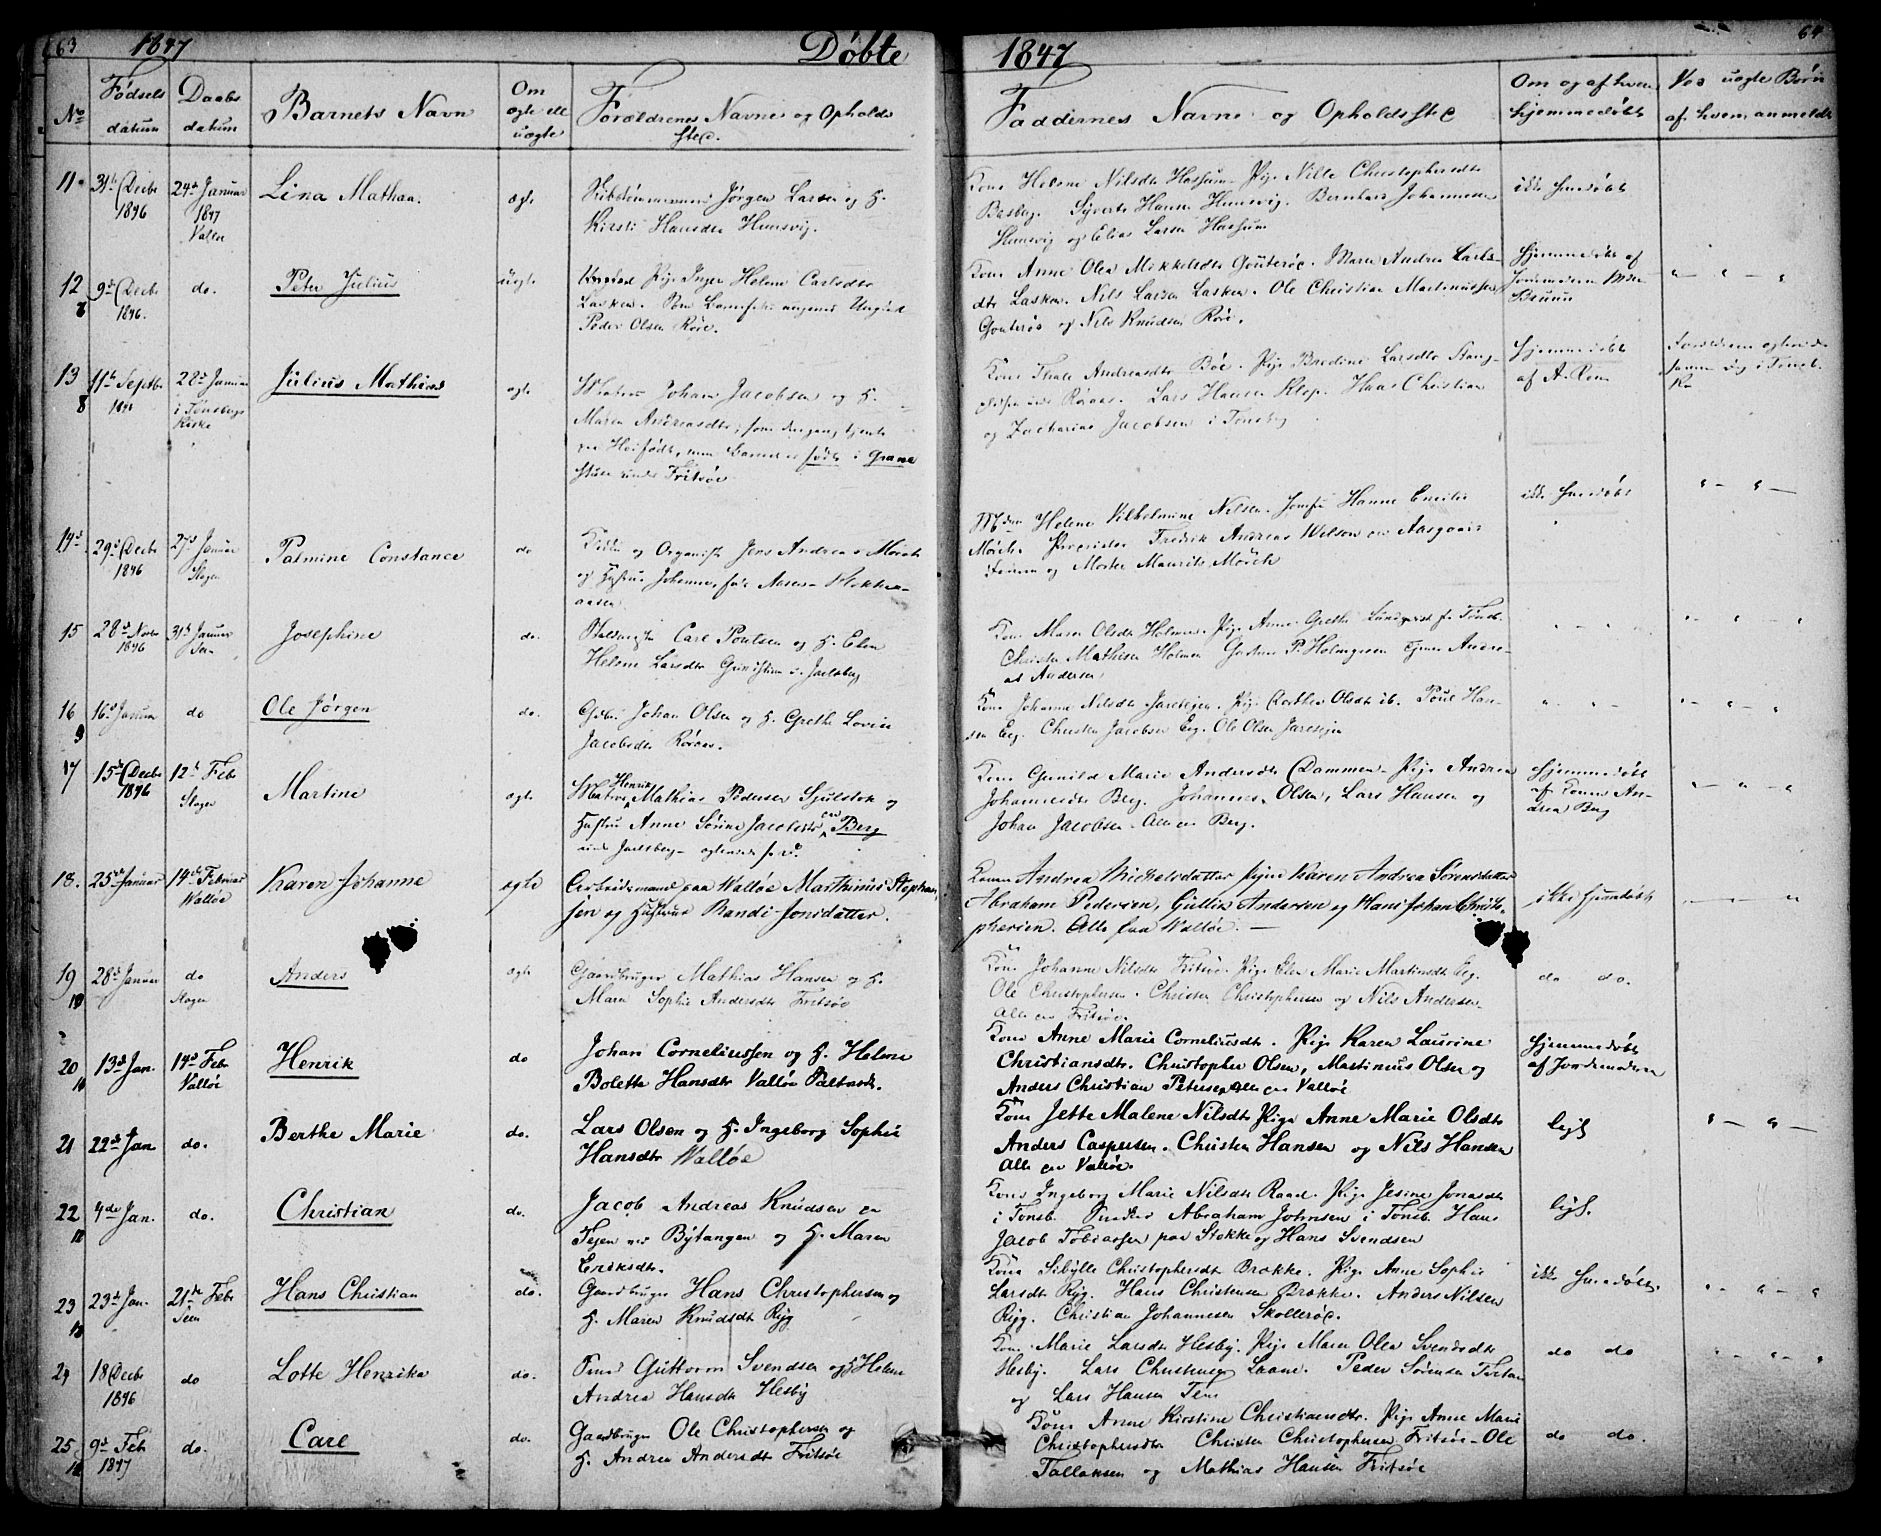 63 1847 Døbte
1847 64
No Fødsels datum
Daabs datum
Barnets Navn
Om ægte ell uægte
Forældrenes Navne og Opholds sted.
Faddernes Navne og Opholdssted
Om og af hvem hjemmedøbt
Ved uægte Børn af hvem anmeldt
11. 31te Decbr 1846 24de Januar 1847 Valløe
Lina Mathea.
ægte
Jørgen Larsen og H.
Kirsti Hansdtr Hunsvig.
Kone Helene Nilsdtr Hassum. Pige Nille Christophersdtr
Basberg. Syvert Hansen Hunsvig. Bernhard Johannesen
Hunsvig og Elias Larsen Hassum
ikke hiemdøbt
12 9de Decbr 1846. do.
Peter Julius
uægte
Pige Inger Helene Carlsdtr
Lasken. Som Barnefader angivet Ungkarl
Peder Olsen Røre.
Kone Anne Olea Mikkelsdtr Gouterøe. Maren Andrea Larsdtr
Lasken. Nils Larsen Lasken. Ole Christian Martinussen
Gouterøe og Nils Knudsen Røre.
Hjemmedøbt af
Jordemoderen
Bruun
13 11te Septbr 1846 28de Januar i Tønsbergs Kirke
Julius Mathias
ægte
Matros Johan Jacobsen og H.
Maren Andreasdtr, som dengang tjente
paa Høifødt, men Barnet er født i Grane
stuen under Fritsøe
Kone Thale Andreasdtr Bøe. Pige Bredine Larsdtr
Røraas. Lars Hansen Klop. Hans Christian
og Zacharias Jacobsen i Tønsberg
Hjemmedøbt
af A. Røren
14de 29de Decbr 1846 27de Januar Slagen
Palmine Constance
do
Kirkes. og Organist Jens Andreas Mørch
og Hustrue Johanne, født Aasen Stokke-
aasen.
Mdm Helene Vilhelmine Nilsen. Jomfru Hanne Emilie
Mørch. Proprietær Fredrik Andreas Wilson paa Aasgaard
og Morten Maurits Mørch
ikke hiemdøbt
15 28de Novbr 1846 31te Januar Sem
Josephine
do.
Carl Poulsen og H. Elen
Helene Larsdtr Gunistuen u. Jarlsberg
Kone Maren Olsdtr Holmen. Pige Anne Grethe Lundqvist fr Tønsb.
Christen Mathisen Holmen Gustav P. Holmgreen Tjener Andre-
as Andersen.
16 16de Januar do
Ole Jørgen
do.
Johan Olsen og H. Grethe Lovise
Jacobsdtr Røraas.
Kone Johanne Nilsdtr Jareteigen. Pige Dorthea Olsdtr ib. Poul Han-
sen Eeg. Christen Jacobsen Eeg. Ole Olsen Jareteigen
17 15de Decbr 1846 12te Febr Slagen
Martine
ægte
Matros Henrik Mathias Pedersen Sjulstok og
Hustru Anne Sørine Jacobsdtr paa Berg
under Jarlsberg
Kone Gunild Marie Andersdtr Dammen. Pige Andrea
Johannesdtr Berg. Johannes Olsen, Lars Hansen og
Johan Jacobsen. Alle paa Berg.
Hjemmedøbt
af Konen An-
drea Berg
18. 25de Januar 14de Februar Valløe
Karen Johanne
ægte
Arbeidsmand paa Walløe Marthinus Stephan-
sen og Hustrue Randi Jonsdatter.
Konen Andrea Michelsdatter Pigen Karen Andrea Sørensdatter
Abraham Pedersen, Gullik Andersen og Hans Johan Christo-
phersen. Alle paa Walløe. —
ikke hjemdøbt
19 28de Januar do Slagen
Anders
ægte
Gaardbruger Mathias Hansen og H.
Maren Sophie Andersdtr Fritsøe
Kone Johanne Nilsdtr Fritsøe. Pige Elen Marie Martinsdtr Eeg.
Ole Christophersen. Christen Christophersen og Nils Andersen
Alle paa Fritsøe.
do do.
20 13de Jan. 14de Febr Valløe
Henrik
do
Johan Corneliussen og H. Helene
Bolette Hansdtr Valløe Saltværk.
Kone Anne Marie Corneliusdtr. Pige Karen Laurine
Christiansdtr. Christopher Olsen, Martinius Olsen og
Anders Christian Petersen, Alle paa Valløe
Hjemmedøbt
af Jordemoderen
21 22de Jan do.
Berthe Marie
do.
Lars Olsen og H. Ingeborg Sophie
Hansdtr Walløe
Kone Jette Malene Nilsdtr Pige Anne Marie Olsdtr
Anders Caspersen. Christen Hansen og Nils Hansen
Alle paa Valløe.
22 4de Jan. do.
Christian
do.
Jacob Andreas Knudsen paa
Teien ved Bytangen og H. Maren
Eriksdtr.
Kone Ingeborg Marie Nilsdtr Raael. Pige Jesine Jonasdtr
i Tønsb. Snedker Abraham Johnsen i Tønsb. Hans
Jacob Tobiassen paa Stokke og Hans Svendsen
23 23de Jan. 21de Febr Sem
Hans Christian
do.
Gaardbruger Hans Christophersen og
H. Maren Knudsdtr Ryg
Kone Sibylle Christophersdtr Brekke. Pige Anne Sophie
Larsdtr Ryg. Hans Christensen Brekke. Anders Nilsen
Ryg. Christian Johannesen Skallerøe.
ikke hiemdøbt.
24 18 Decbr 1846 do
Lotte Henrike
do.
Guttorm Svendsen og H Helene
Andrea Hansdtr Hesby
Kone Marie Larsdtr Hesby. Pige Maren Olea Svendsdtr
Hesby. Lars Christensen. Peder Sørensen
og Lars Hansen
do do
25 9de Feb 1847 do.
Carl
do.
Gaardbruger Ole Christophersen og
H. Andrea Andersdtr Fritsøe
Kone Anne Kirstine Christiansdtr. Pige Anne Marie
Christophersdtr Christen Christophersen Fritsøe. Ole
Tallaksen og Mathias Hansen Fritsøe
do do.